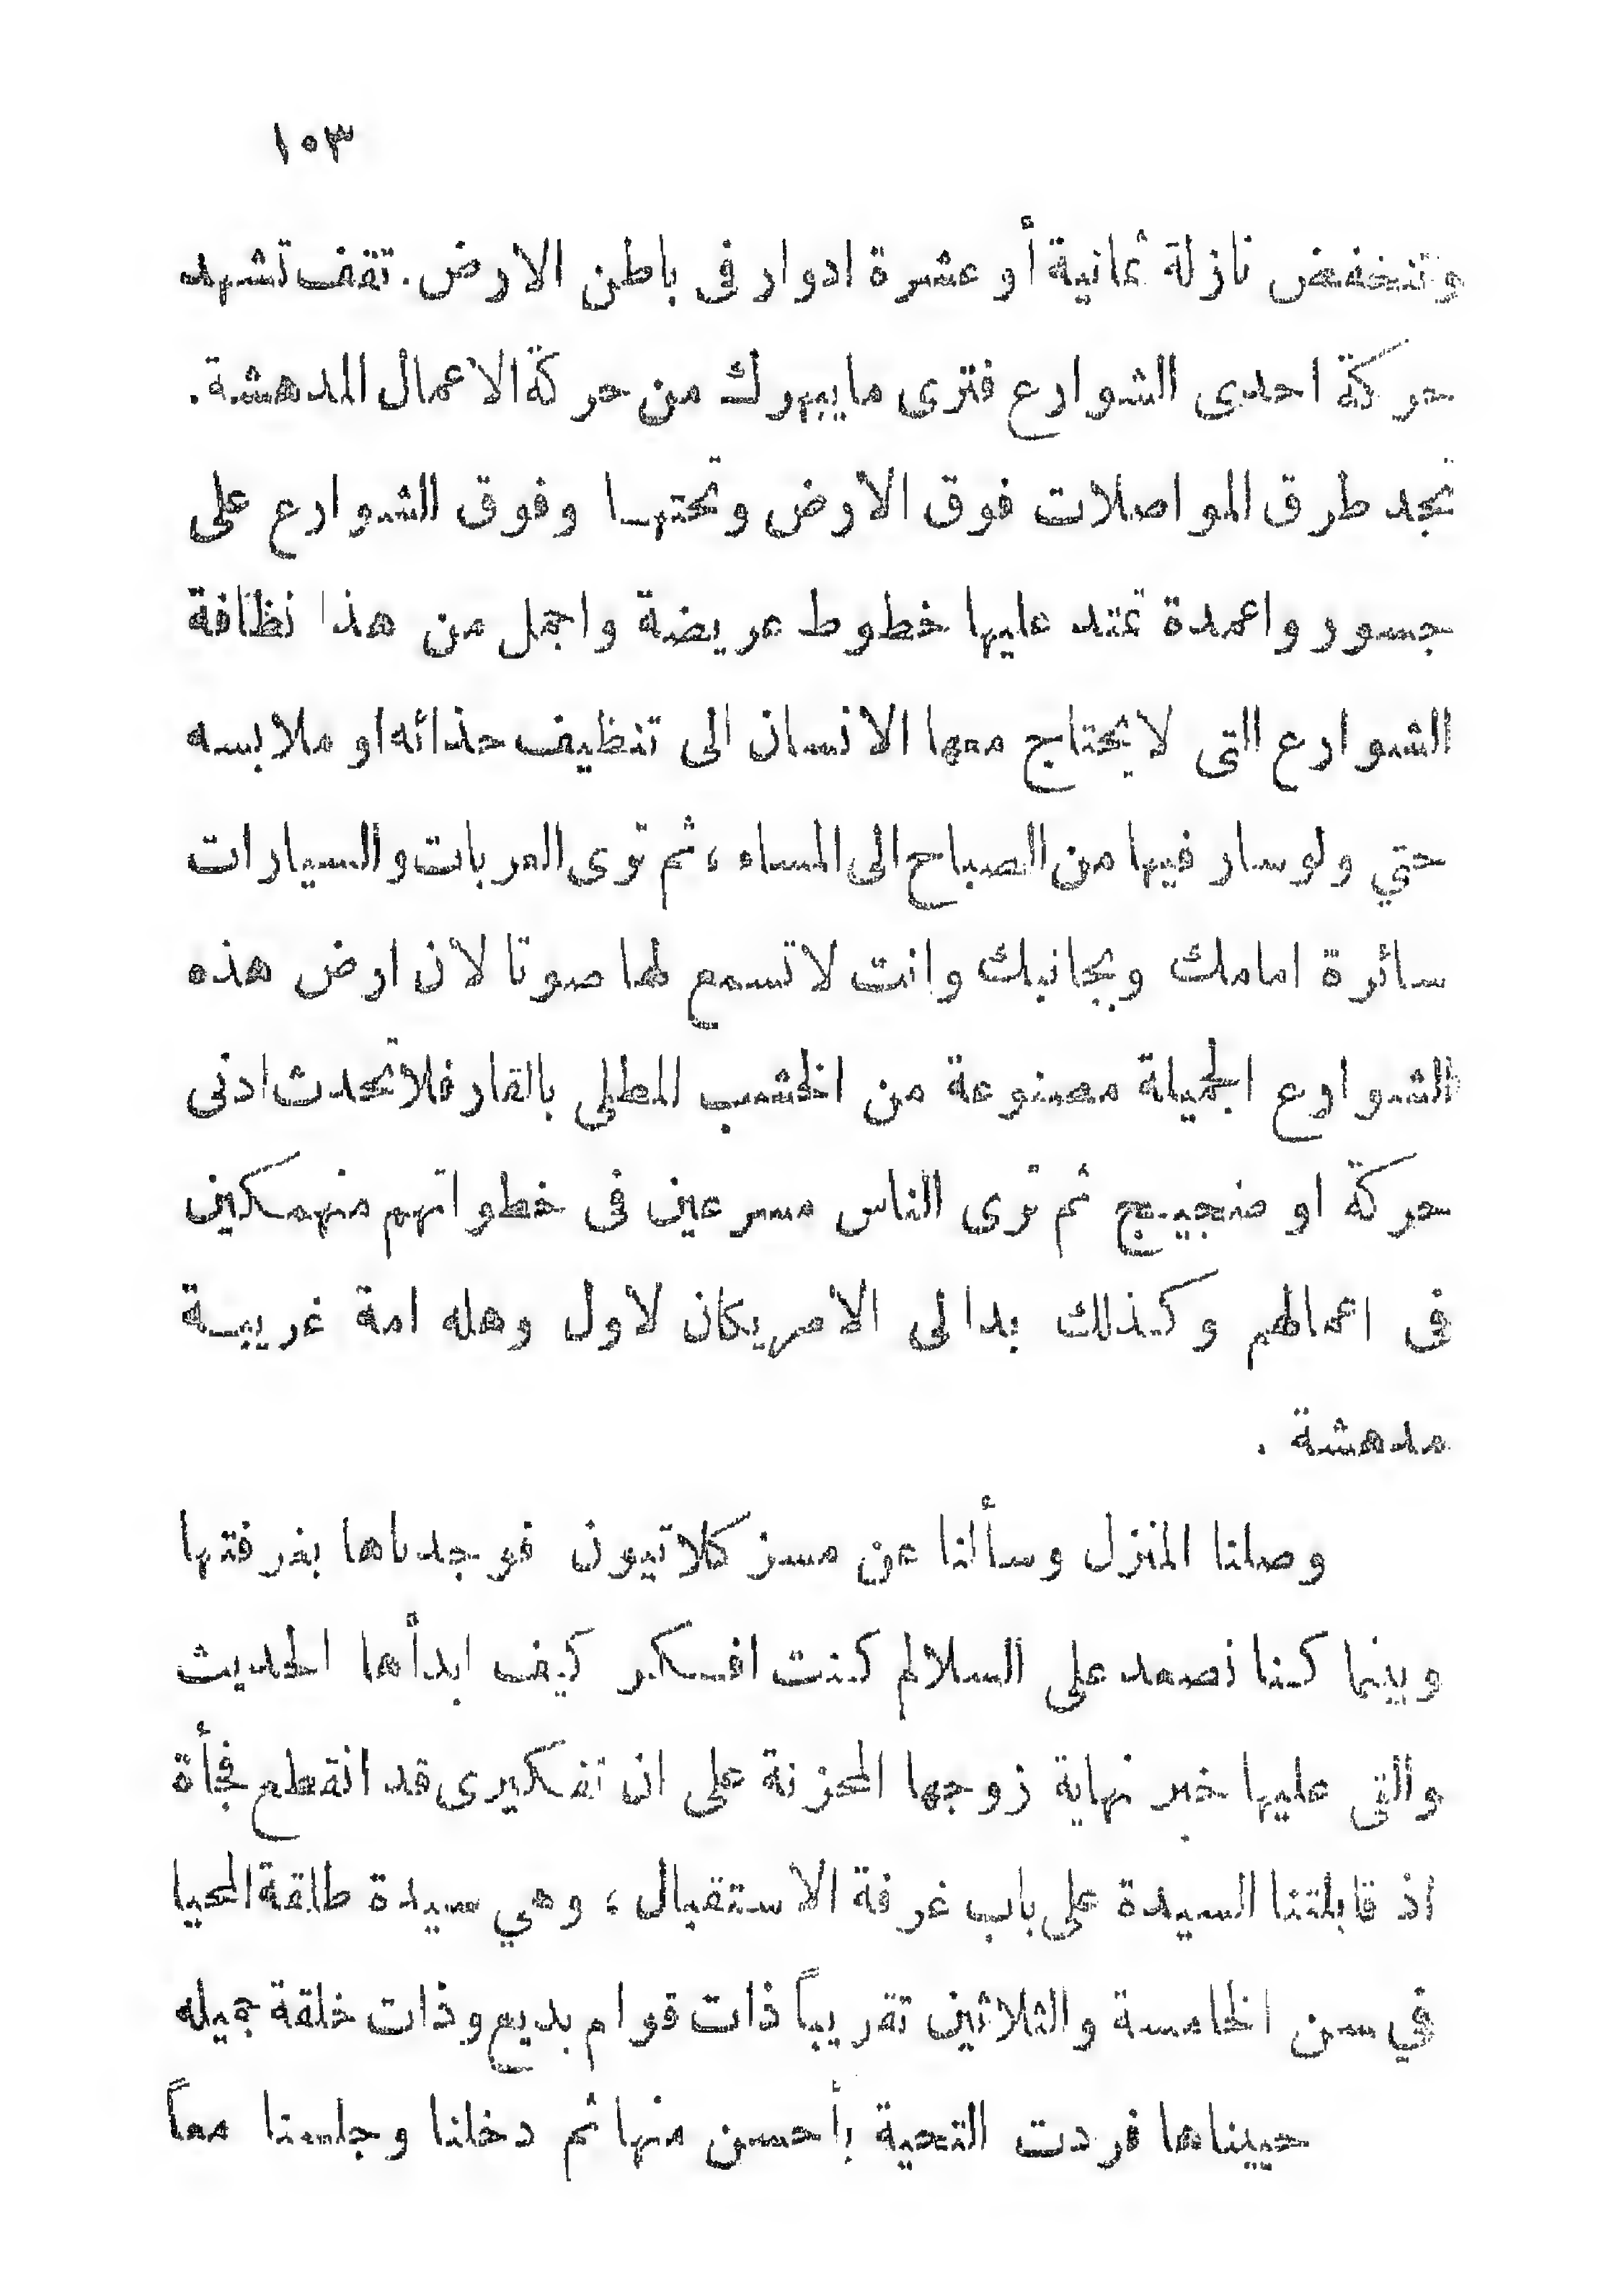 ١٠٣
وتنخفض نازلة ثمانية أو عشرة ادوار فى باطن الارض. تقف تشهد
حركة احدى الشوارع فترى ما يبهرك من حركة الاعمال المدهشة.
تجد طرق المواصلات فوق الارض وتحتها وفوق الشوارع على
جسور واعمدة تمتد عليها خطوط عريضة واجمل من هذا نظافة
الشوارع التى لا يحتاج معها الانسان الى تنظيف حذائه او ملابسه
حتي ولو سار فيها من الصباح الى المساء ، ثم ترى العربات والسيارات
سائرة امامك وبجانبك وانت لا تسمع لها صوتا لان ارض هذه
الشوارع الجميلة مصنوعة من الخشب المطلى بالقار فلا تحدث ادنى
حركة او ضجيج ثم ترى الناس مسرعين فى خطواتهم منهمكين
فى اعمالهم وكذلك بدا لى الامريكان لاول وهله امة غريبة
مدهشة .
وصلنا المنزل وسألنا عن مسز كلاتيون فوجدناها بغرفتها
وبينما كنا نصعد على السلالم كنت افكر كيف ابدأها الحديث
والقى عليها خبر نهاية زوجها المحزنة على ان تفكيرى قد انقطع فجأة
اذ قابلتنا السيدة على باب غرفة الاستقبال ، وهي سيدة طلقة المحيا
في سن الخامسة والثلاثين تقريباً ذات قوام بديع وذات خلقة جميله
حييناها فردت التحية بأحسن منها ثم دخلنا وجلسنا معاً